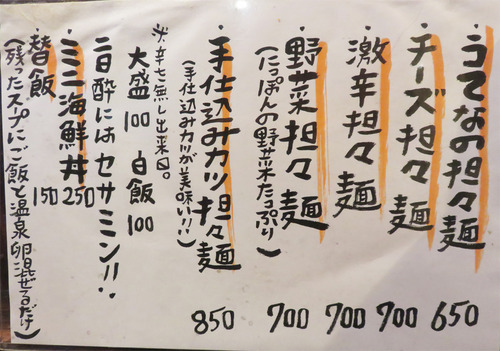 うてなの担々麺 650
チーズ担々麺 700
激辛担々麺 700
野菜担々麺 700
(にっぽんの野菜たっぷり)
手仕込みカツ担々麺 850
(手仕込みカツが美味い!!!)
※辛さ無し出来〼。
大盛100 白飯100
二日酔にはセサミン!!
ミニ海鮮丼 250
替飯 150
(残ったスープにご飯と温泉卵混ぜるだけ)